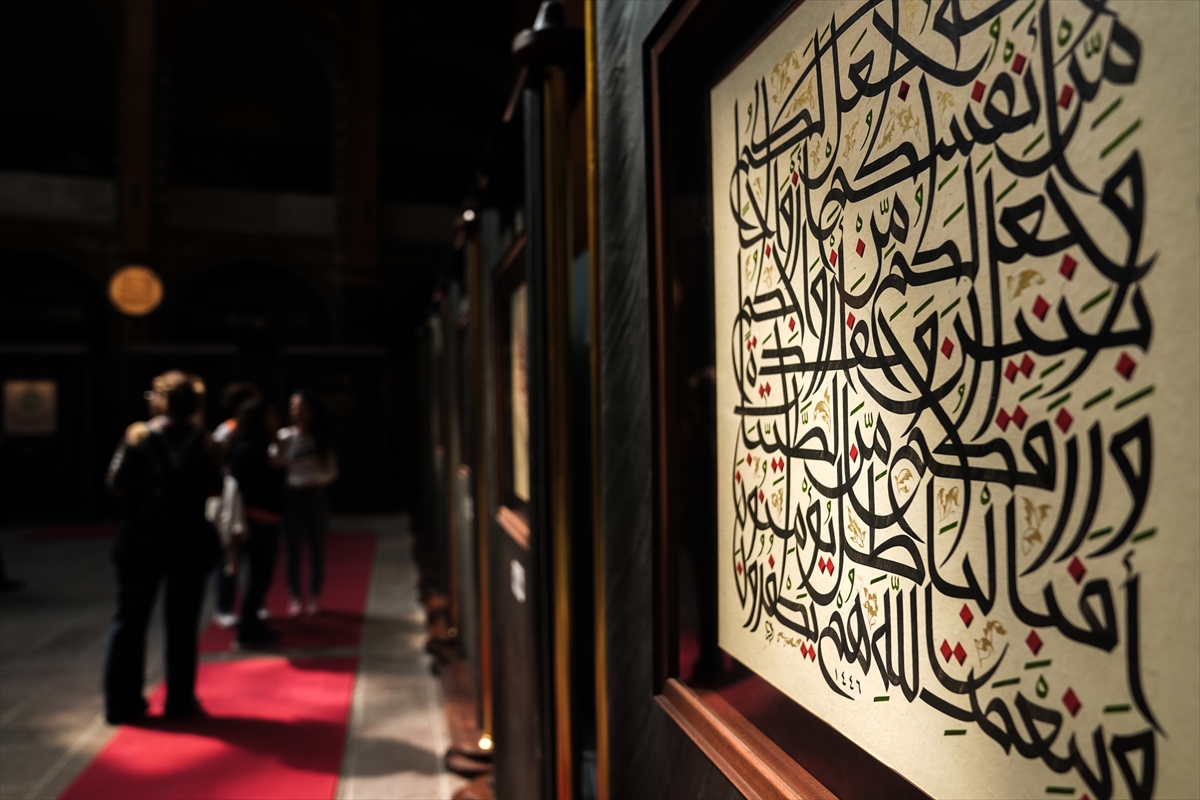 جعل لكم
مّن أنفسكم أزواجا
وجعل لكم مّن أزواجكم
بنين وحفدة
ورزقكم مّن الطّيّبات
أفبالباطل يؤمنون
وبنعمت اللّه هم يكفرون
١٤٤٦